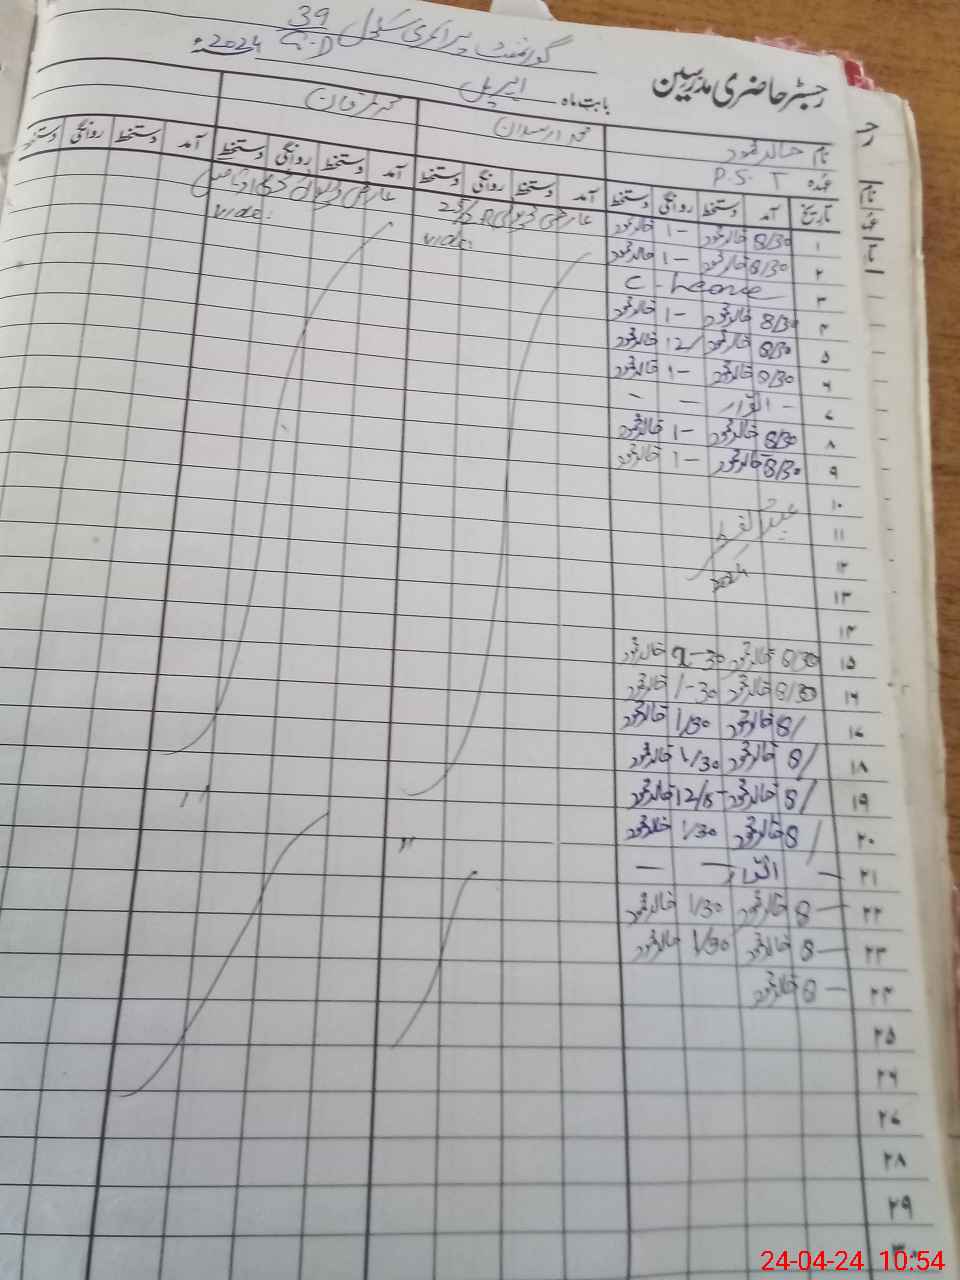 رجسٹر حاضری مدرسین
گورنمنٹ پرائمری سکول 39
بابت ماہ اپریل 2024ء
نام خالد محمود
عہدہ P.S.T
تاریخ آمد دستخط روانگی دستخط آمد دستخط روانگی دستخط آمد دستخط روانگی دستخط آمد دستخط روانگی دستخط
۱ 8/30 خالد محمود 1- خالد محمود
۲ 8/30 خالد محمود 1- خالد محمود
۳ C-leave
۴ 8/30 خالد محمود 1- خالد محمود
۵ 8/30 خالد محمود 12/ خالد محمود
۶ 8/30 خالد محمود 1- خالد محمود
۷ - اتوار - -
۸ 8/30 خالد محمود 1- خالد محمود
۹ 8/30 خالد محمود 1- خالد محمود
۱۰
۱۱ عید الفطر
۱۲ 2024
۱۳
۱۴
۱۵ 8/30 خالد محمود خالد محمود
۱۶ 8/30 خالد محمود 1-30 خالد محمود
۱۷ 8/ خالد محمود 1/30 خالد محمود
۱۸ 8/ خالد محمود 1/30 خالد محمود
۱۹ 8/ خالد محمود خالد محمود
۲۰ 8/ خالد محمود 1/30 خالد محمود
۲۱ - اتوار - -
۲۲ 8- خالد محمود 1/30 خالد محمود
۲۳ 8- خالد محمود 1/30 خالد محمود
۲۴ 8- خالد محمود
۲۵
۲۶
۲۷
۲۸
۲۹
۳۰
24-04-24 10:54